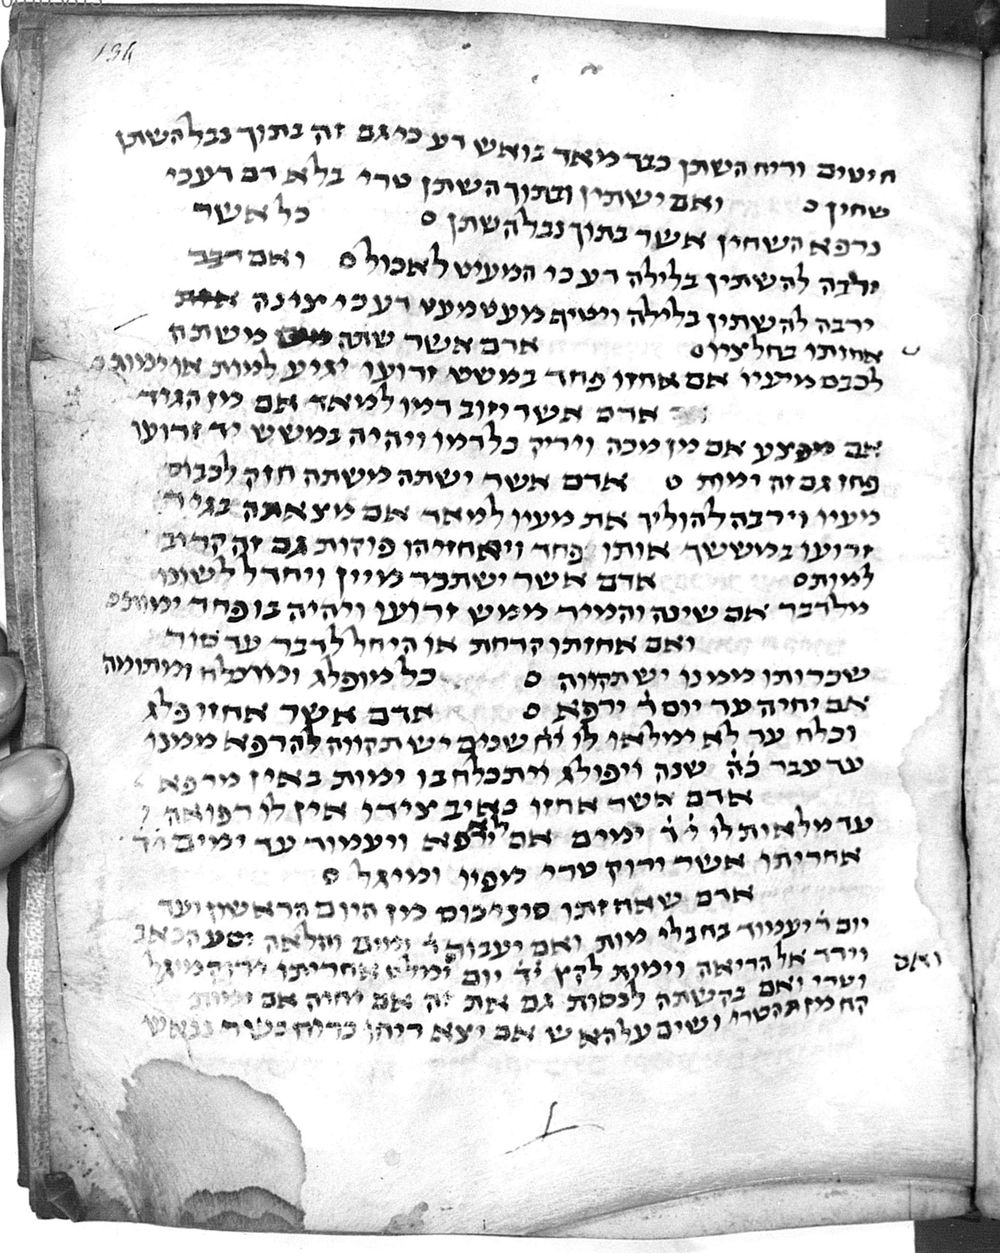 134
חיטים וריח השתן כבד מאד בואש רע כי גם זה בתוך נבל השתן
שחין ס ואם ישתין ובתוך השתן טרי בלא דם רע כי
נרפא השחין אשר בתוך נבל השתן ס כל אשר
ירבה להשתין בלילה רע כי המעיט לאכול ס ואם
ירבה להשתין בלילה ויטיף מעט מעט רע כי צינה
אחותו בחלציו ס אדם אשר שותה משתה
לכבס מיעיו אם אחזו פחד במשש זרועו יגיע למות או ימות
אדם אשר יזוב דמו למאד אם מן הגיד
אם מפצע אם מן מכה ויריק כל דמו ויהיה במשש יד זרועו
פחז גם זה ימות ס אדם אשר ישתה משתה חזק לכבוס
מעיו וירבה להוליך את מעיו למאד אם מצאתה בגיד
זרועו במששך אותו פחד ויאחזיהו פוקות גם זה קרוב
למות ס אדם אשר ישתכר מיין ויחדל לשונו
מלדבר אם שינה והמיר ממש זרועו ויהיה בו פחד ימות
ואם אחזתו קדחת או היחל לדבר עד סור
שכרותו ממנו יש תקוה ס כל מופלג
אם יחיה עד יום ז׳ ירפא ס אדם אשר אחזו פלג
וכלח עד לא ימלאו לו שנים יש תקוה להרפא ממנו
עד עבר כ׳ה׳ שנה ויפולג ויתכלח בו ימות באין מרפא
אדם אשר אחזו כאיב צידו אין לו רפואה
עד מלאות לו ימים אם לא ירפא ויעמוד עד ימים
אחריתו אשר ירוק טרי מפיו ומיגל ס
אדם שאחזתו מן היום הראשון ועד
יום ז׳ יעמוד בחבלי מות ואם יעבור ז׳ ימים והלאה יסע הכאב
וירד אל הריאה וימות לקץ י׳ד׳ יום ימלט אחריתו ירוק מיגל
ואם
וטרי ואם בקשתה לנסות גם את זה אם יחיה אם ימות
קח מן הטרי ושים על האש אם יצא ריחו כריח בשר נבאש